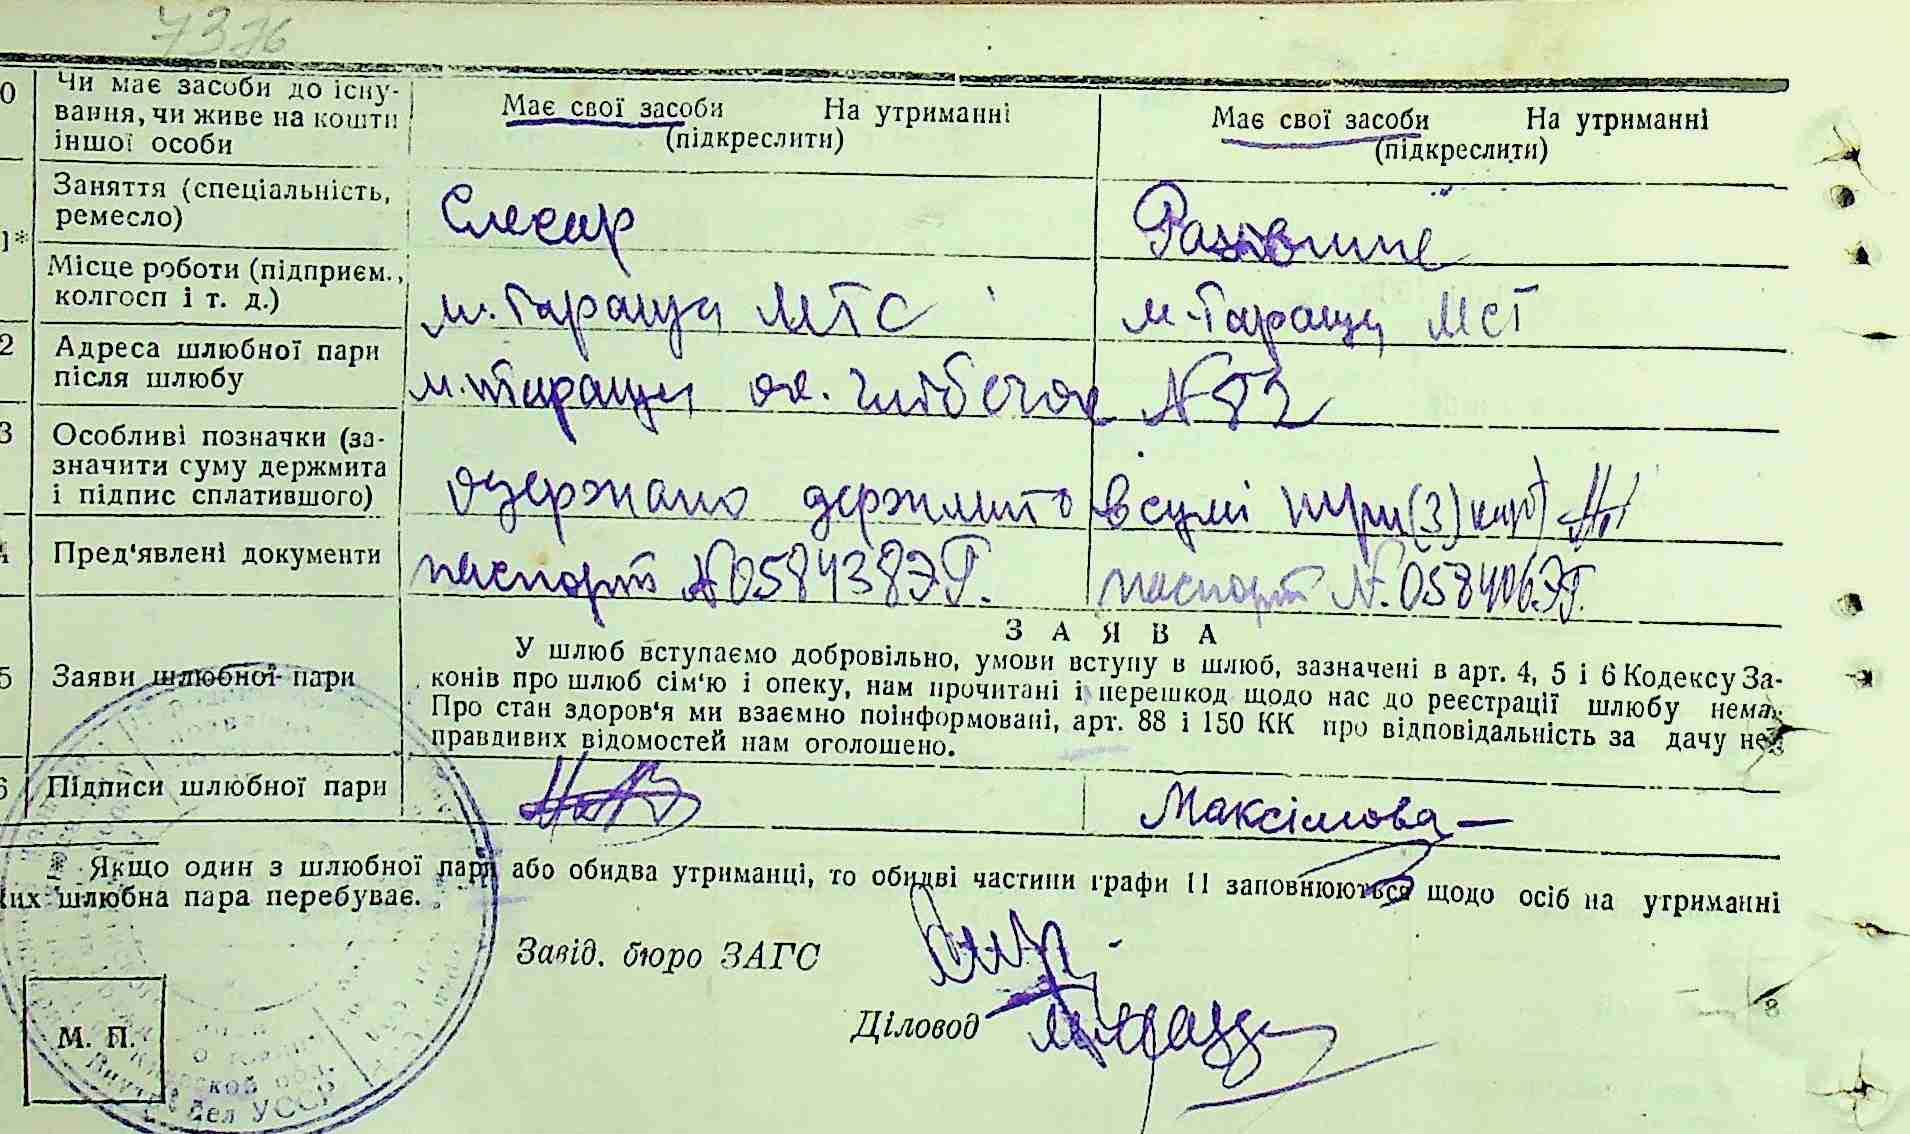 7376
0 Чи має засоби до існу-
вання, чи живе на кошти
іншої особи
Має свої засоби На утриманні
(підкреслити)
Має свої засоби На утриманні
(підкреслити)
1* Заняття (спеціальність,
ремесло)
Слесар
Місце роботи (підприєм.,
колгосп і т. д.)
м. Тараща МТС
м. Тараща
2 Адреса шлюбної пари
після шлюбу
м. Тараща №82
3 Особливі позначки (за-
значити суму держмита
і підпис сплатившого)
одержано держмито в сумі три (3) карб
4 Пред'явлені документи
паспорт №058438ЭГ.
паспорт №. 058406ЭГ.
5 Заяви шлюбної пари
ЗАЯВА
У шлюб вступаємо добровільно, умови вступу в шлюб, зазначені в арт. 4, 5 і 6 Кодексу За-
конів про шлюб сім'ю і опеку, нам прочитані і перешкод щодо нас до реєстрації шлюбу нема.
Про стан здоров'я ми взаємно поінформовані, арт. 88 і 150 КК про відповідальність за дачу не-
правдивих відомостей нам оголошено.
6 Підписи шлюбної пари
Максімова
* Якщо один з шлюбної пари або обидва утриманці, то обидві частини графи 11 заповнюються щодо осіб на утриманні
їх шлюбна пара перебуває.
Завід. бюро ЗАГС
Діловод
М. П.
Киевской обл.
Внутр. Дел УССР
8